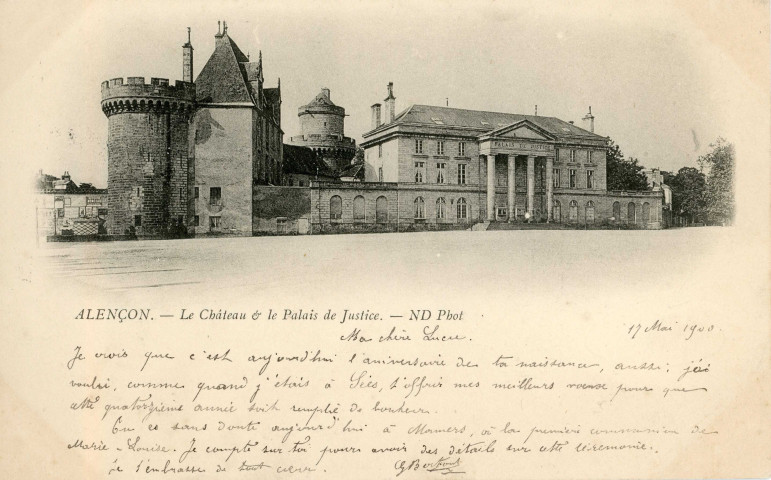 PALAIS DE JUSTICE
ALENÇON. — Le Château & le Palais de Justice. — ND Phot
17 Mai 1900
Ma chère Lucie.
Je crois que c'est aujourd'hui l'aniversaire de ta naissance, aussi, j'ai
voulu, comme quand j'étais à Sées, t'offrir mes meilleurs voeux pour que
cette quatorzième année soit remplie de bonheur.
Tu es sans doute aujourd'hui à Mamers, à la première communion de
Marie-Louise. Je compte sur toi pour avoir des détails sur cette cérémonie.
Je t'embrasse de tout coeur.